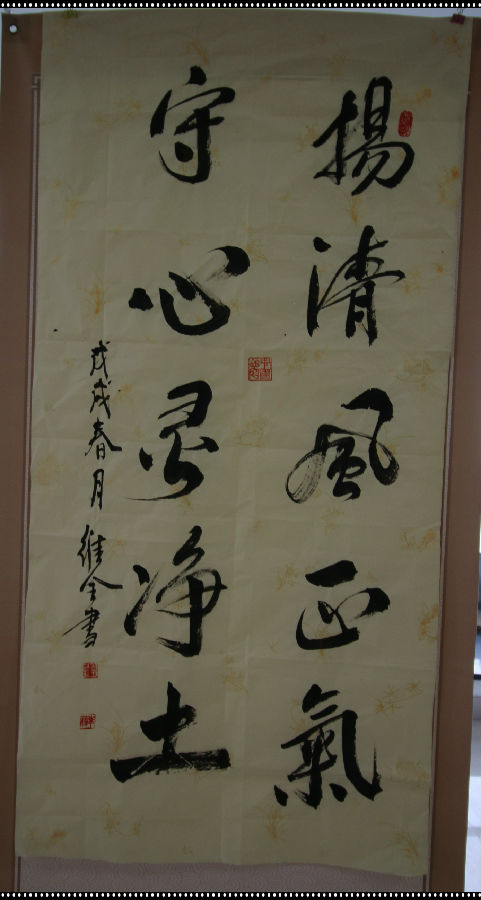 揚清風正氣
守心灵净土
戊戌春月維全書